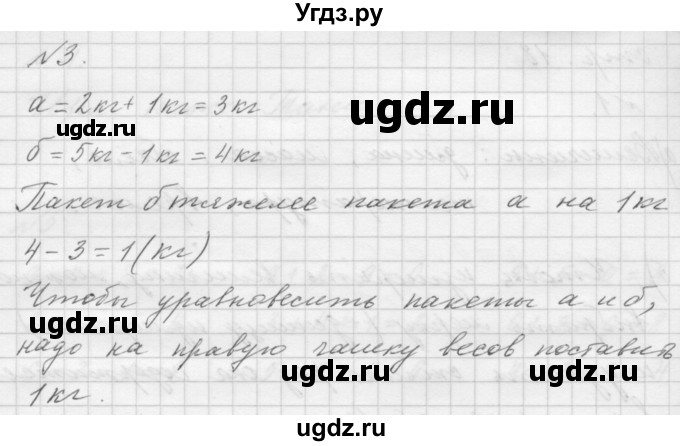 Угдз.ру
№3.
а = 2кг + 1кг = 3кг
б = 5кг - 1кг = 4кг
Пакет б тяжелее пакета а на 1кг
4 - 3 = 1 (кг)
Чтобы уравновесить пакеты а и б,
надо на правую чашку весов поставить
1кг.
ugdz.ru
ugdz.ru
ugdz.ru
ugdz.ru
ugdz.ru
ugdz.ru
ugdz.ru
Угдз.ру